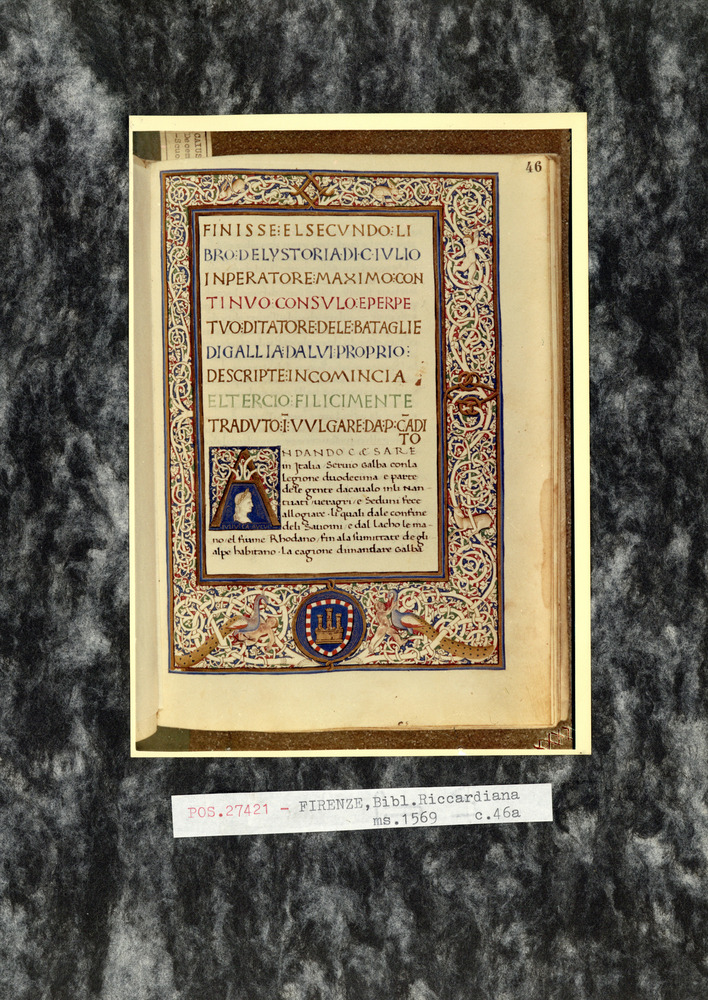 46
FINISSE:ELSECVNDO:LI
BRO:DELYSTORIADI·C·IVLIO
INPERATORE:MAXIMO:CON
TINVO·CONSVLO:EPERPE
TVO:DITATORE:DELE:BATAGLIE
DIGALLIA:DALVI:PROPRIO:
DESCRIPTE:INCOMINCIA
ELTERCIO:FILICIMENTE
TRADVTO:Ī:VVLGARE:DA:P:CĀDI
TO
A
NDANDO CESARE
in Italia Seruio Galba conla
Legione duodecima e parte
dele gente dacaualo inli Nan-
tuati ueragri e Seduni fece
allogiare · li quali dale confine
deli Sauoini e dal Lacho le ma-
no/el fiume Rhodano/fin ala sumitate de gli
alpe habitano · La cagione dimandare Galba
POS.27421 - FIRENZE,Bibl.Riccardiana
ms.1569 c.46a